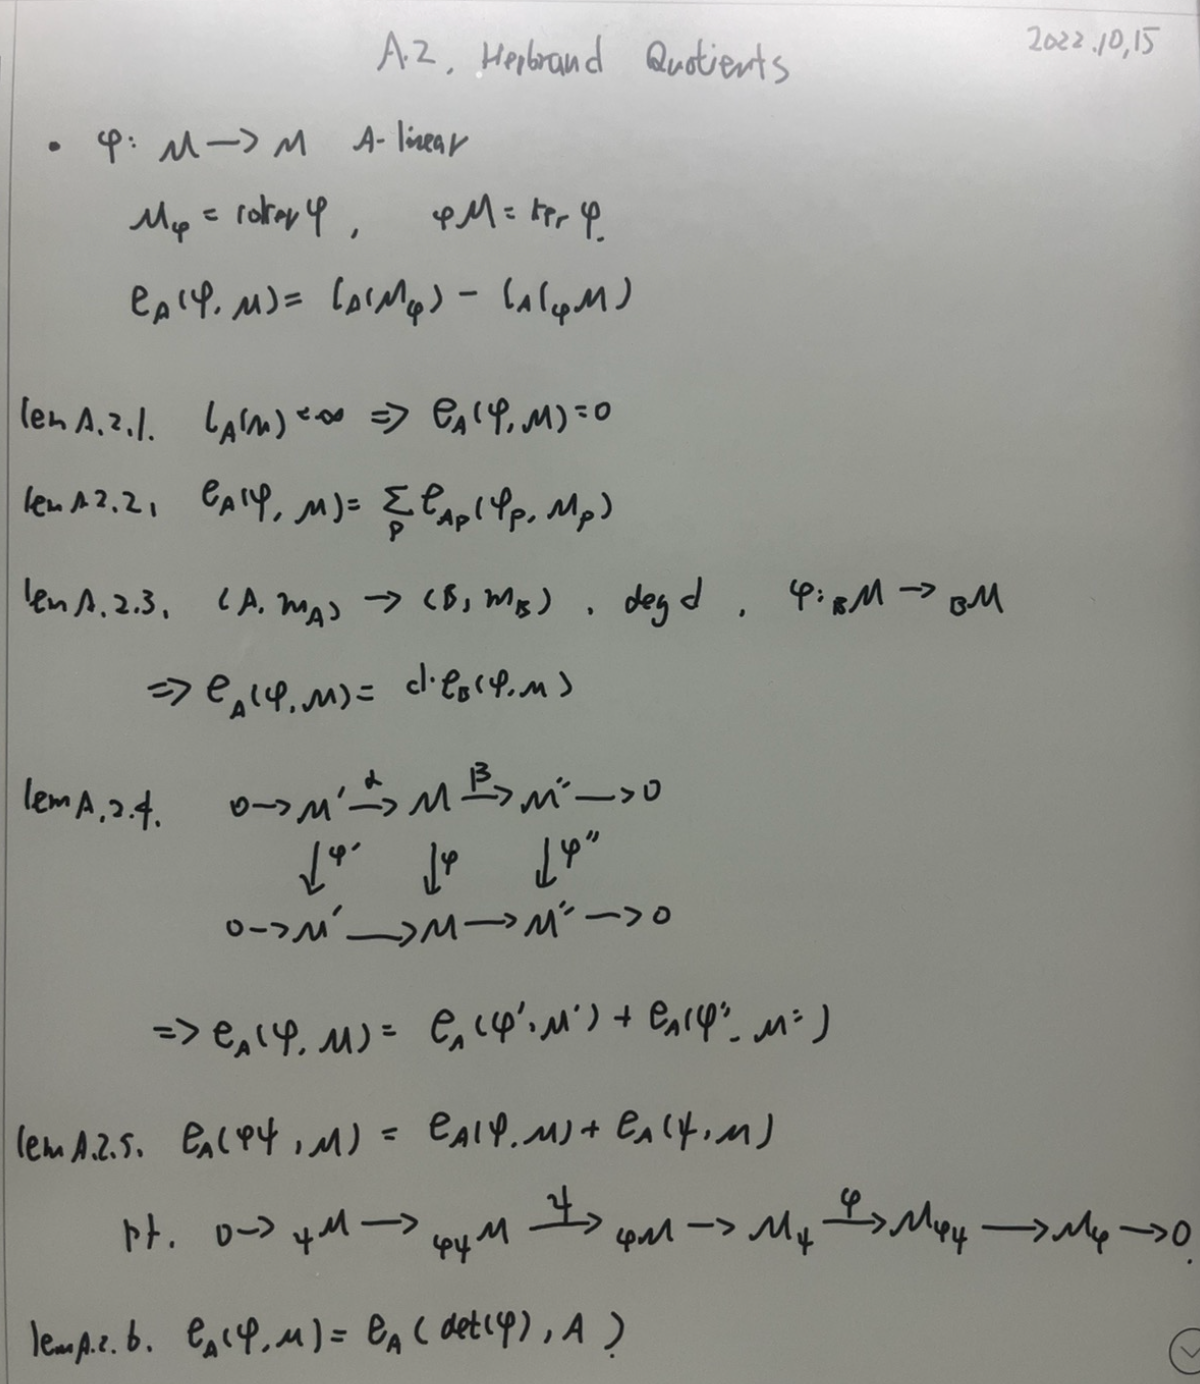 A.2. Herbrand Quotients 2022.10,15
• φ: M → M A-linear
M_φ = coker φ, _φM = ker φ.
e_A(φ, M) = l_A(M_φ) - l_A(_φM)
lem A.2.1. l_A(M) < ∞ => e_A(φ, M) = 0
lem A2.2, e_A(φ, M) = Σ_p e_{A_p}(φ_p, M_p)
lem A.2.3. (A, m_A) → (B, m_B), deg d, φ: _BM → _BM
=> e_A(φ, M) = d·e_B(φ, M)
lem A.2.4. 0 → M' →^α M →^β M'' → 0
↓φ' ↓φ ↓φ''
0 → M' → M → M'' → 0
=> e_A(φ, M) = e_A(φ', M') + e_A(φ'', M'')
lem A.2.5. e_A(φψ, M) = e_A(φ, M) + e_A(ψ, M)
pf. 0 → _ψM → _{φψ}M →^ψ _φM → M_ψ →^φ M_{φψ} → M_φ → 0.
lem A.2.6. e_A(φ, M) = e_A(det(φ), A).